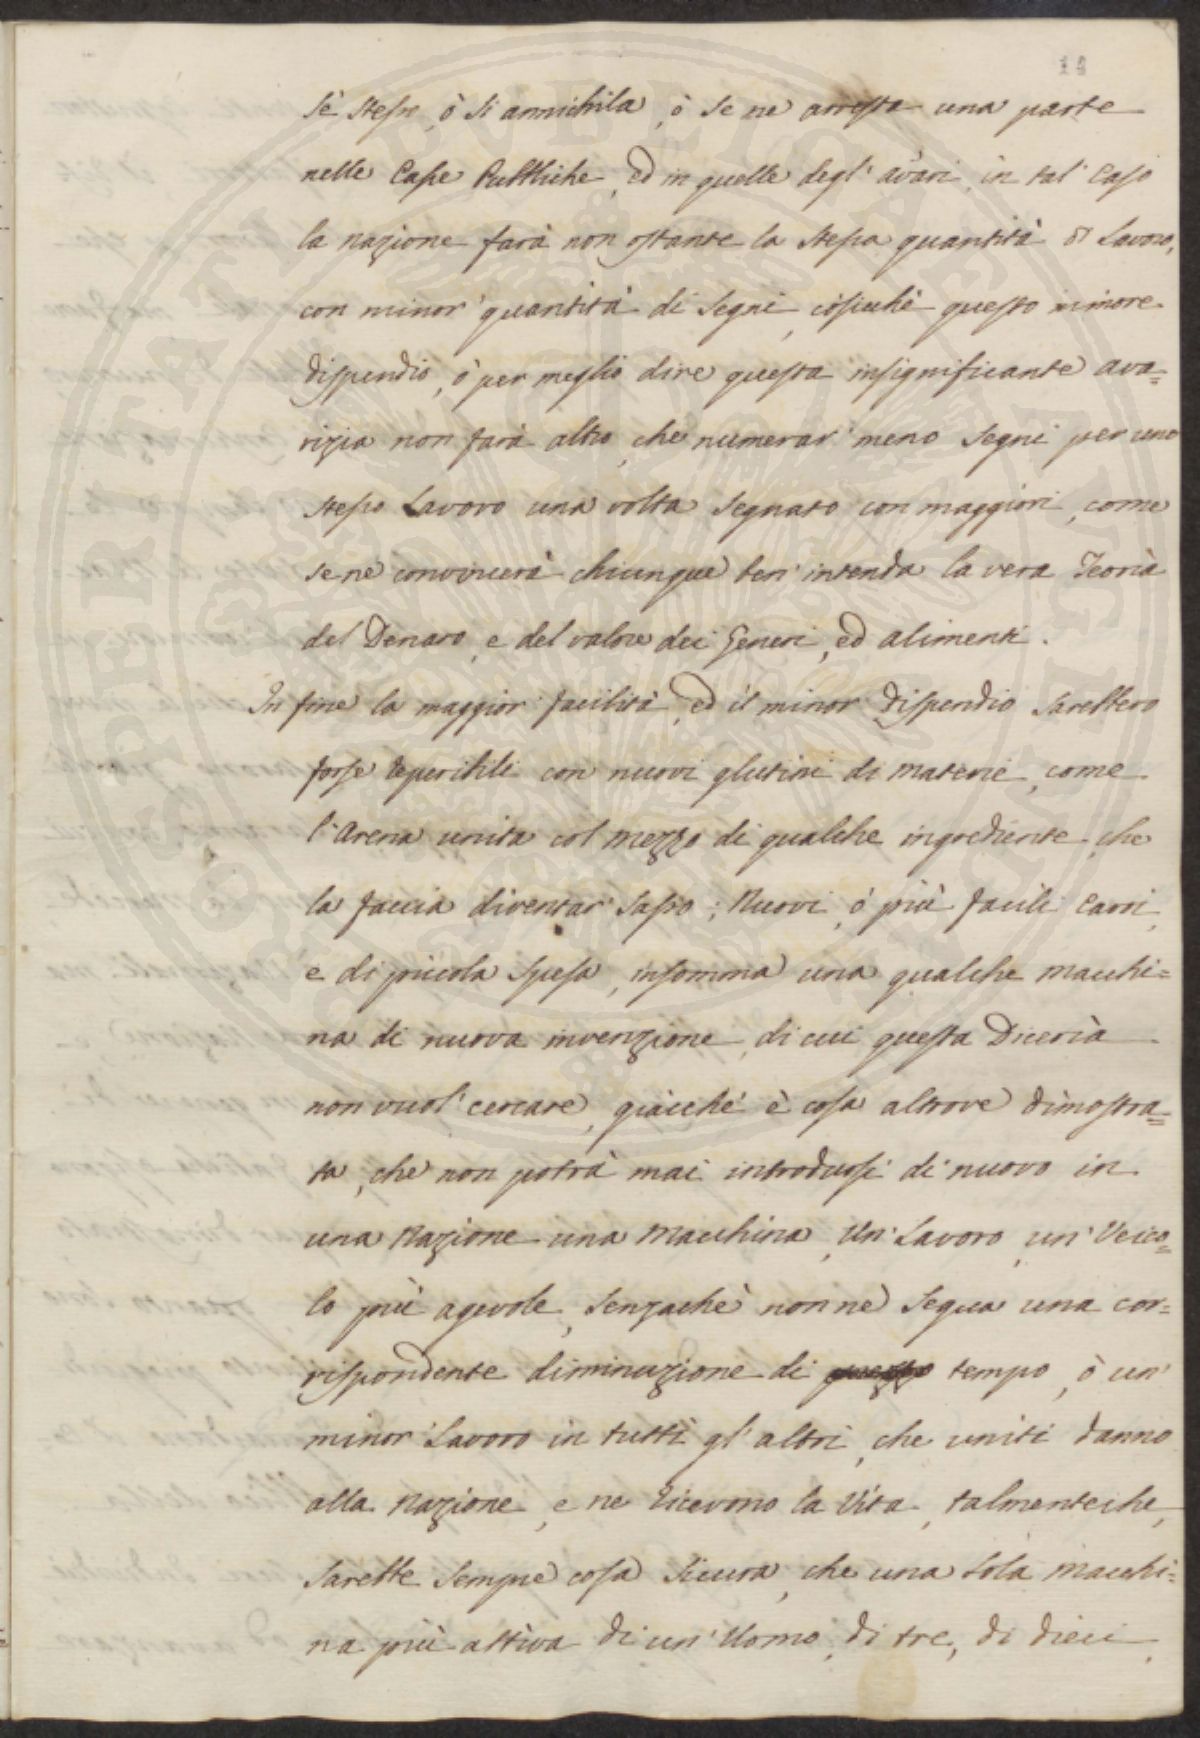 14
sè stesso, ò si annichila, ò se ne arresta una parte
nelle Casse Pubbliche, ed in quelle degl' avari, in tal' Caso
la nazione farà non ostante la stessa quantità di Lavoro,
con minor' quantità di segni, cosicchè questo minore
dispendio, ò per meglio dire questa insignificante ava=
rizia non farà altro, che numerar' meno segni per uno
stesso Lavoro una volta segnato con maggiori, come
se ne convincerà chiunque ben' intenda la vera Teorìa
del Denaro, e del valore dei Generi, ed alimenti.
In fine la maggior facilità, ed il minor dispendio sarebbero
forse reperibili con nuovi glutini di materie, come
l'Arena unita col mezzo di qualche ingrediente, che
la faccia diventar' sasso; Nuovi, ò più facili Carri,
e di piccola spesa, insomma una qualche macchi=
na di nuova invenzione, di cui questa Dicerìa
non vuol' cercare, giacchè è cosa altrove dimostra=
ta, che non potrà mai introdursi di nuovo in
una Nazione una Macchina, un' Lavoro, un' Veico=
lo più agevole, senzachè non ne segua una cor=
rispondente diminuzione di tempo, ò un'
minor' Lavoro in tutti gl' altri, che uniti danno
alla Nazione, e ne ricevono la Vita, talmenteche,
sarebbe sempre cosa sicura, che una sola macchi=
na più attiva di un' Uomo, di tre, di dieci,
PROSPERITATI PUBLICAE AUGENDAE